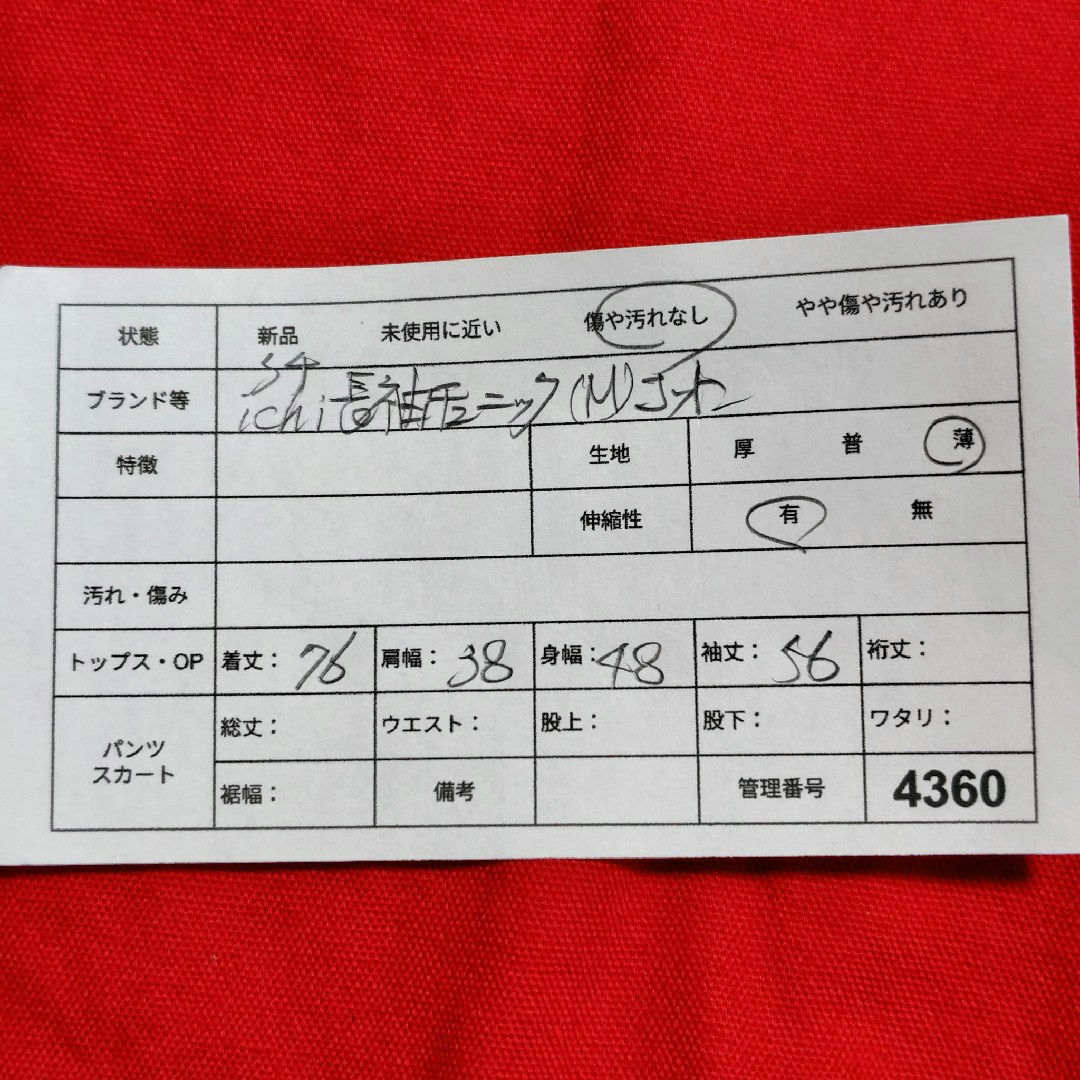 状態 新品 未使用に近い 傷や汚れなし やや傷や汚れあり
ブランド等 ichi 長袖チュニック (M)
特徴 生地 厚 普 薄
伸縮性 有 無
汚れ・傷み
トップス・OP 着丈： 76 肩幅： 38 身幅： 48 袖丈： 56 裄丈：
パンツ スカート 総丈： ウエスト： 股上： 股下： ワタリ：
裾幅： 備考 管理番号 4360